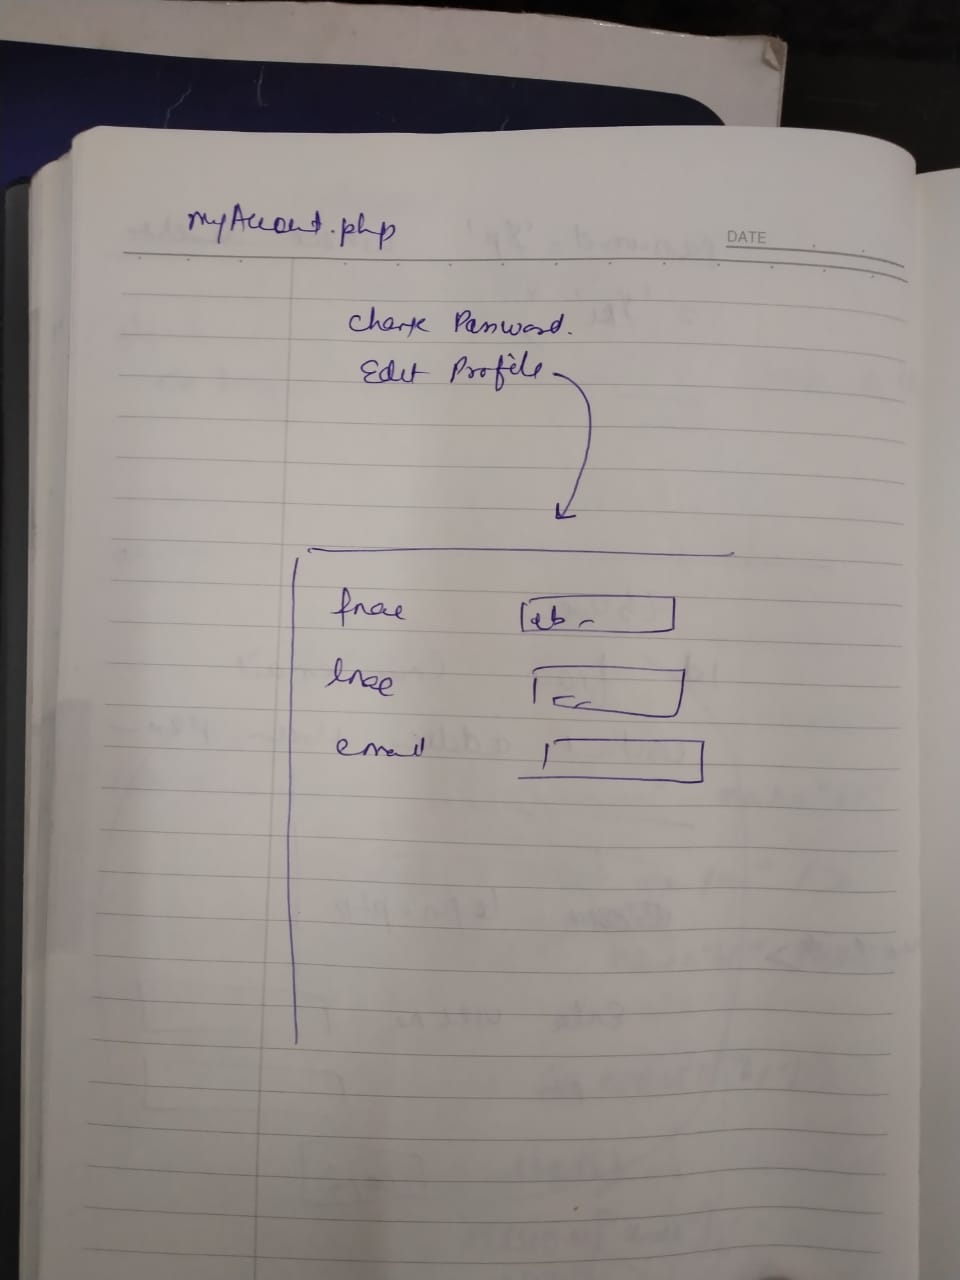 myAccount.php
DATE
Change Password.
Edit Profile
fname
lname
email